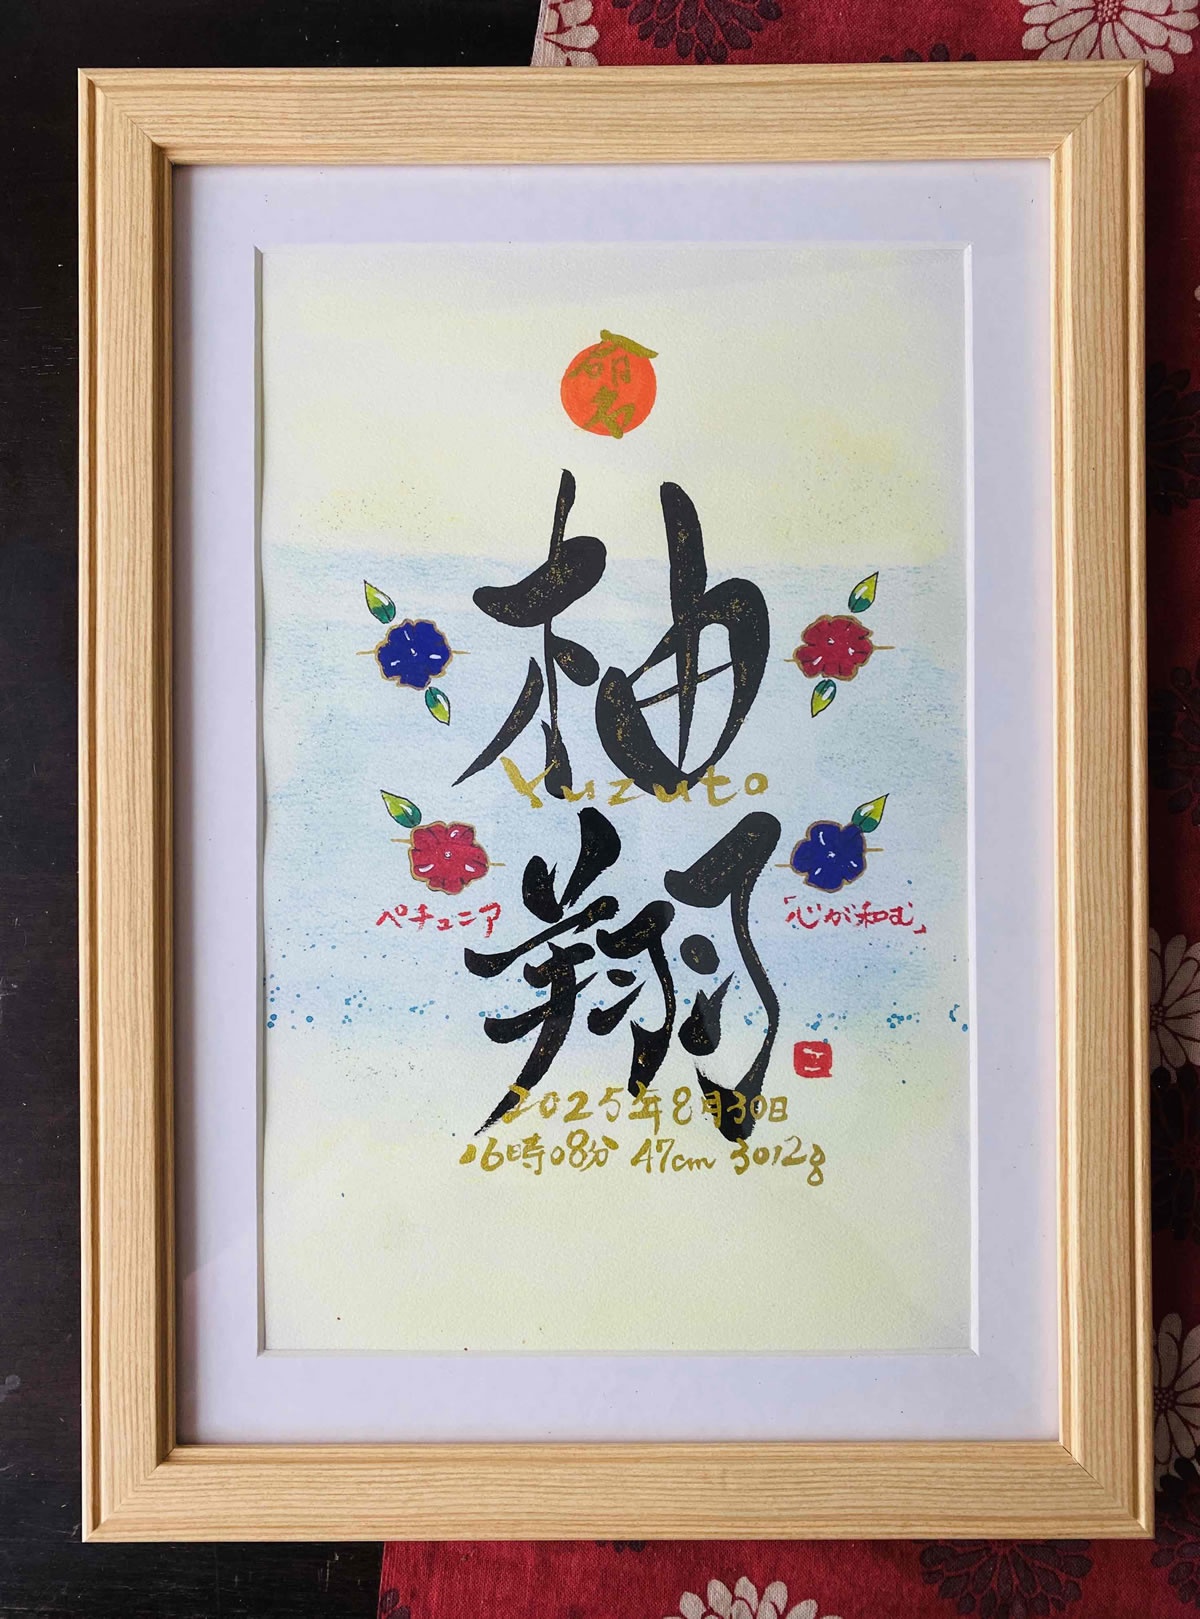 命名
柚
Yuzuto
翔
ペチュニア
「心が和む」
2025年8月30日
16時08分 47cm 3012g